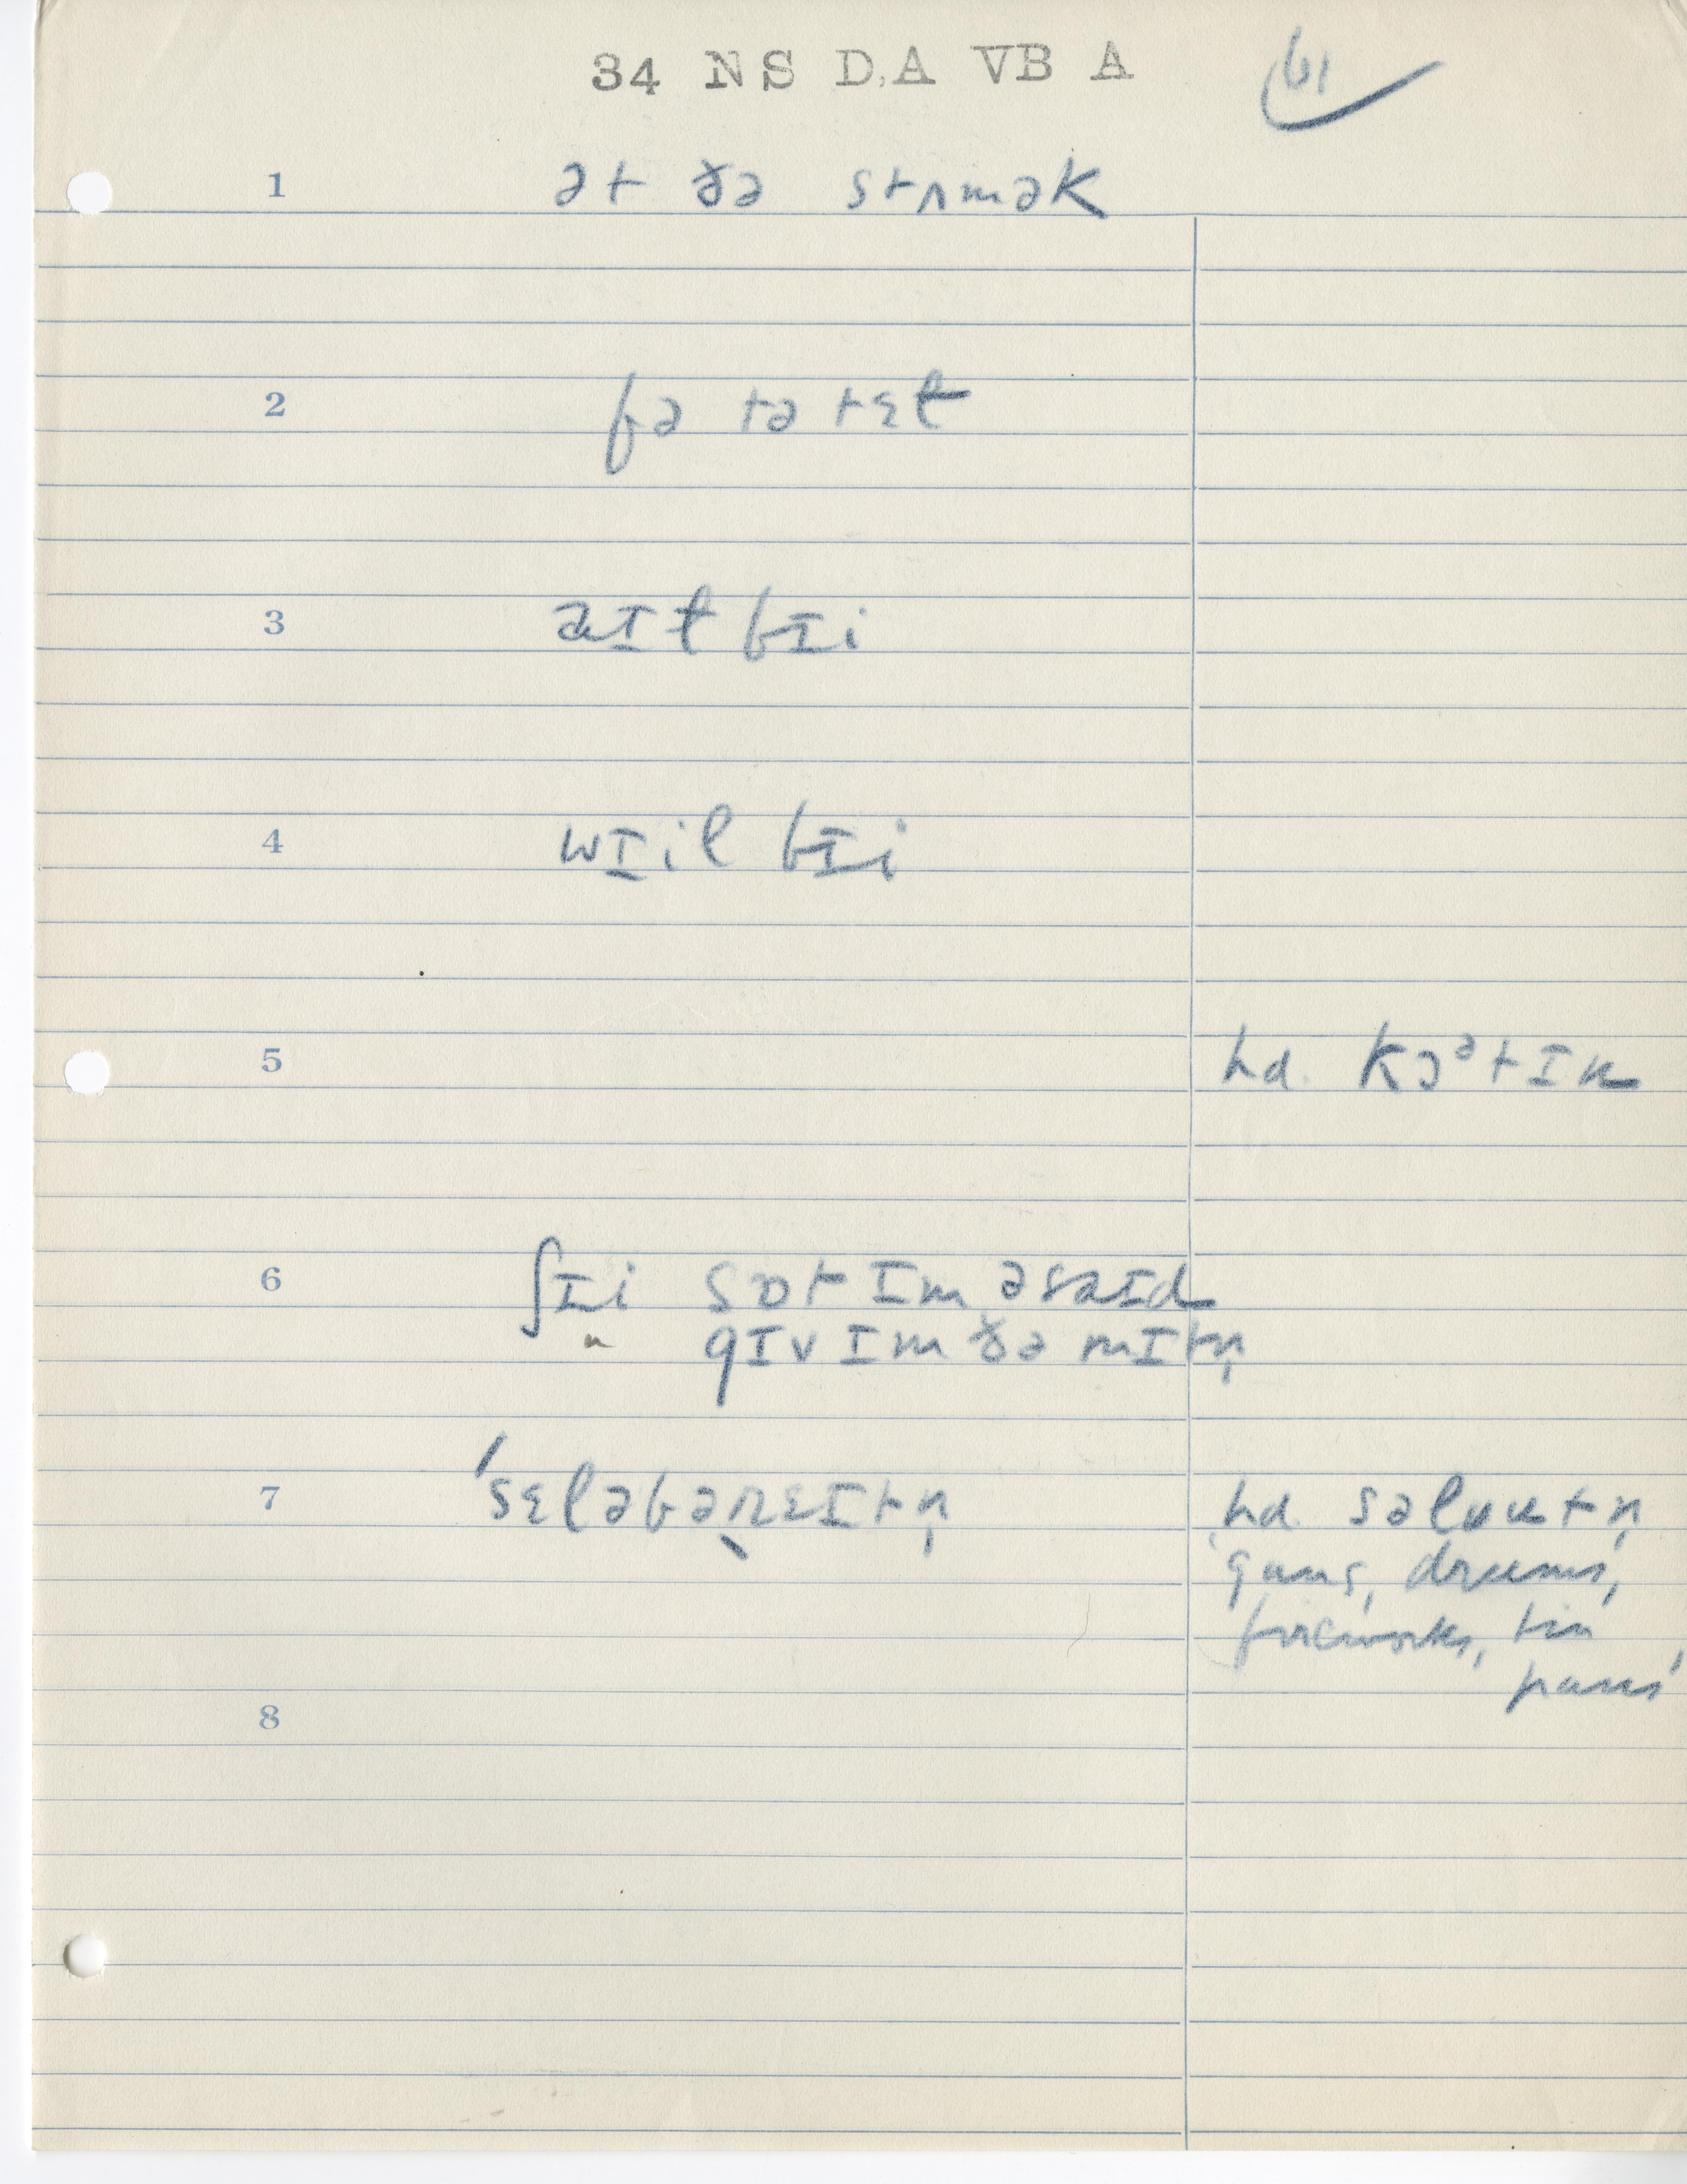 34 NS D.A VB A
61
1 ət ðə stʌmək
2 fə tə tɛɫ
3 aɪɫ bɪi
4 wɪil bɪi
5 hd. kɔᵊtɪn
6 ʃɪi sɒt ɪm əsaɪd
n gɪv ɪm ðə mɪtn̩
7 ˈsɛləbəɹɛɪtn̩ hd. səlʊutn̩
guns, drums,
fireworks, tin
pans
8